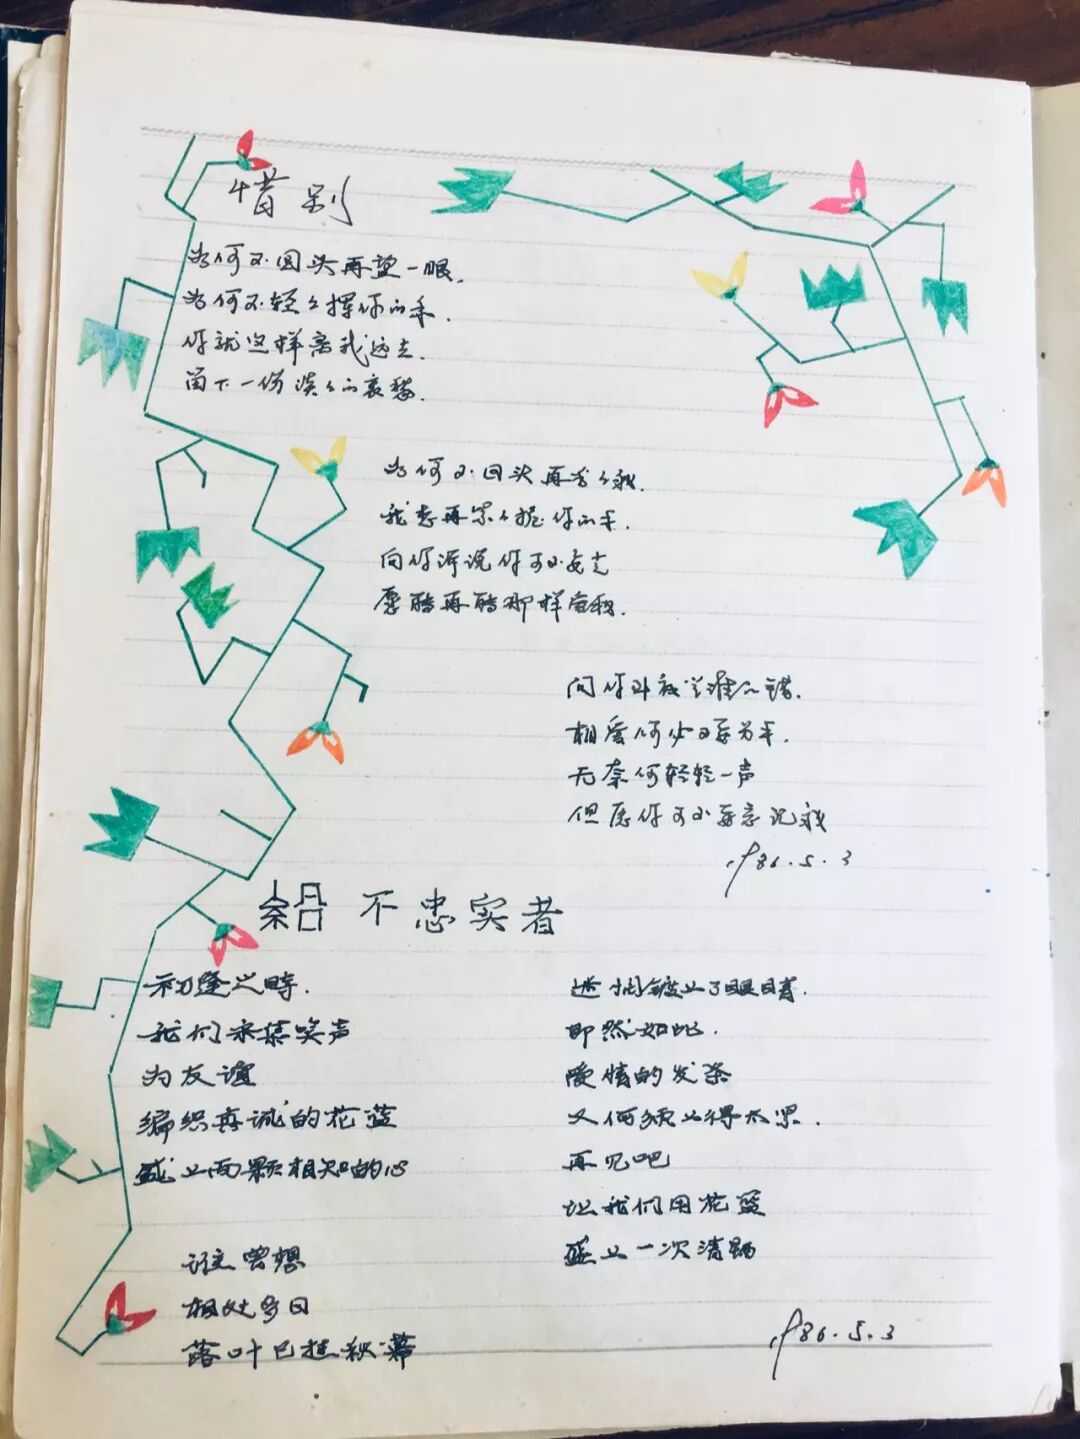 惜别
为何不回头再望一眼.
为何不轻轻挥你的手.
你就这样离我远去.
留下一份淡淡的哀愁.
为何不回头再看看我.
我想再紧紧握你的手.
向你诉说你可不要走
愿能再能那样
问你我谁的错.
相爱何必要分手.
无奈何轻轻一声
但愿你可不要忘记我
1986.5.3
给不忠实者
初逢之时.
我们采集笑声
为友谊
编织真诚的花蓝
盛上两颗相知的心
谁曾想
相处多日
落叶已挂秋幕
迷惘镀上了眼睛.
即然如此.
爱情的发条
又何须上得太紧.
再见吧
让我们用花蓝
盛上一次清晒
1986.5.3